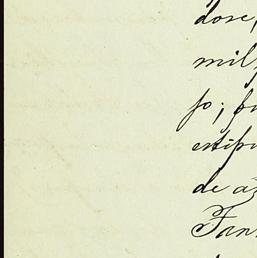 dore,
mil
so; fu
estipu
de az
Fan